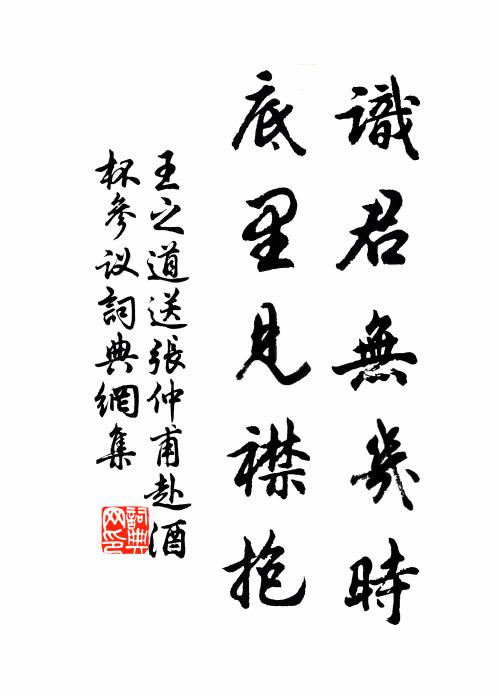 識君無幾時
底里見襟抱
王之道送張仲甫赴酒
杯參议詞典網集
詞典
网印